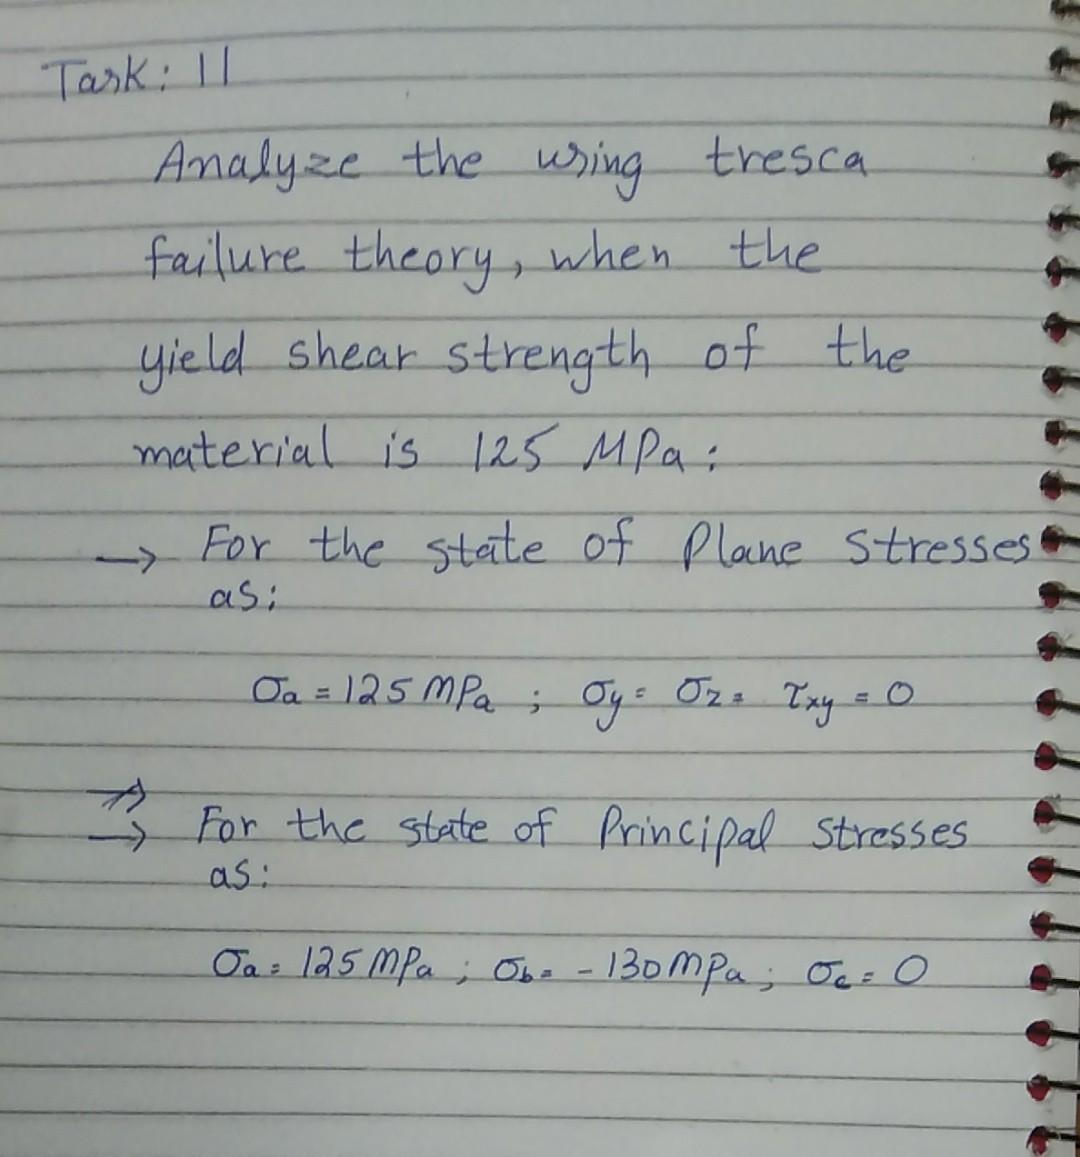 Task: 11
Analyze the using tresca
failure theory, when the
yield shear strength of the
material is 125 MPa:
→ For the state of Plane Stresses
as:
σa = 125 MPa ; σy = σz = τxy = 0
→ For the state of Principal Stresses
as:
σa = 125 MPa ; σb = - 130 MPa ; σc = 0